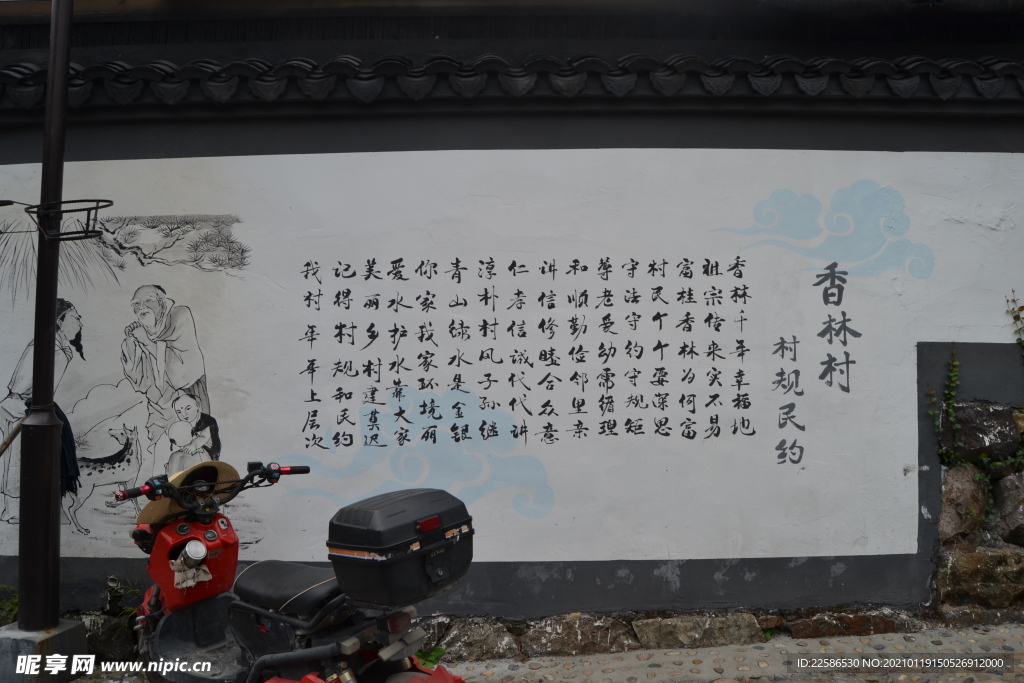 香林村
村规民约
香林千年幸福地
祖宗传来实不易
富桂香林为何富
村民个个要深思
守法守约守规矩
尊老爱幼需缙理
和顺勤俭邻里亲
讲信修睦合众意
仁孝信诚代代讲
淳朴村风子子孙继
青山绿水是金银
你家我家环境丽
爱水护水靠大家
美丽乡村建莫迟
记得村规和民约
我村年年上层次
昵享网 www.nipic.cn
ID:22586530 NO:20210119150526912000